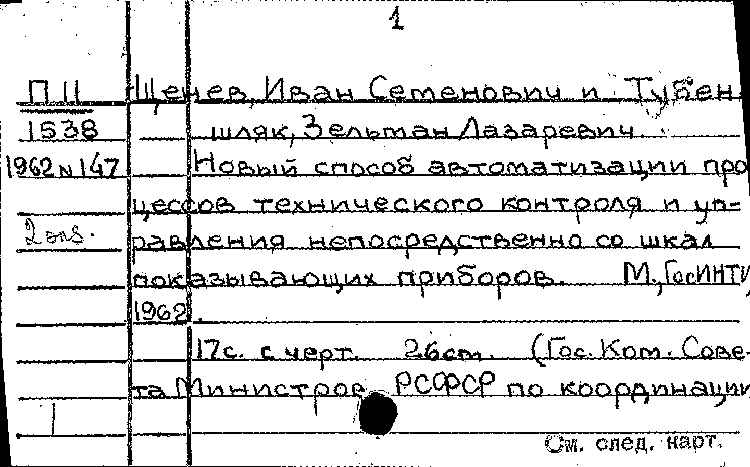 1
П II Щенев, Иван Семенович и Тубен-
1538 шляк, Зельман Лазаревич.
1962 N 147 Новый способ автоматизации про
цессов технического контроля и уп-
2 экз. равления непосредственно со шкал
показывающих приборов. М., ГосИНТИ,
1962.
17с. с черт. 26см. (Гос. Ком. Сове-
та Министров РСФСР по координации
См. след. карт.